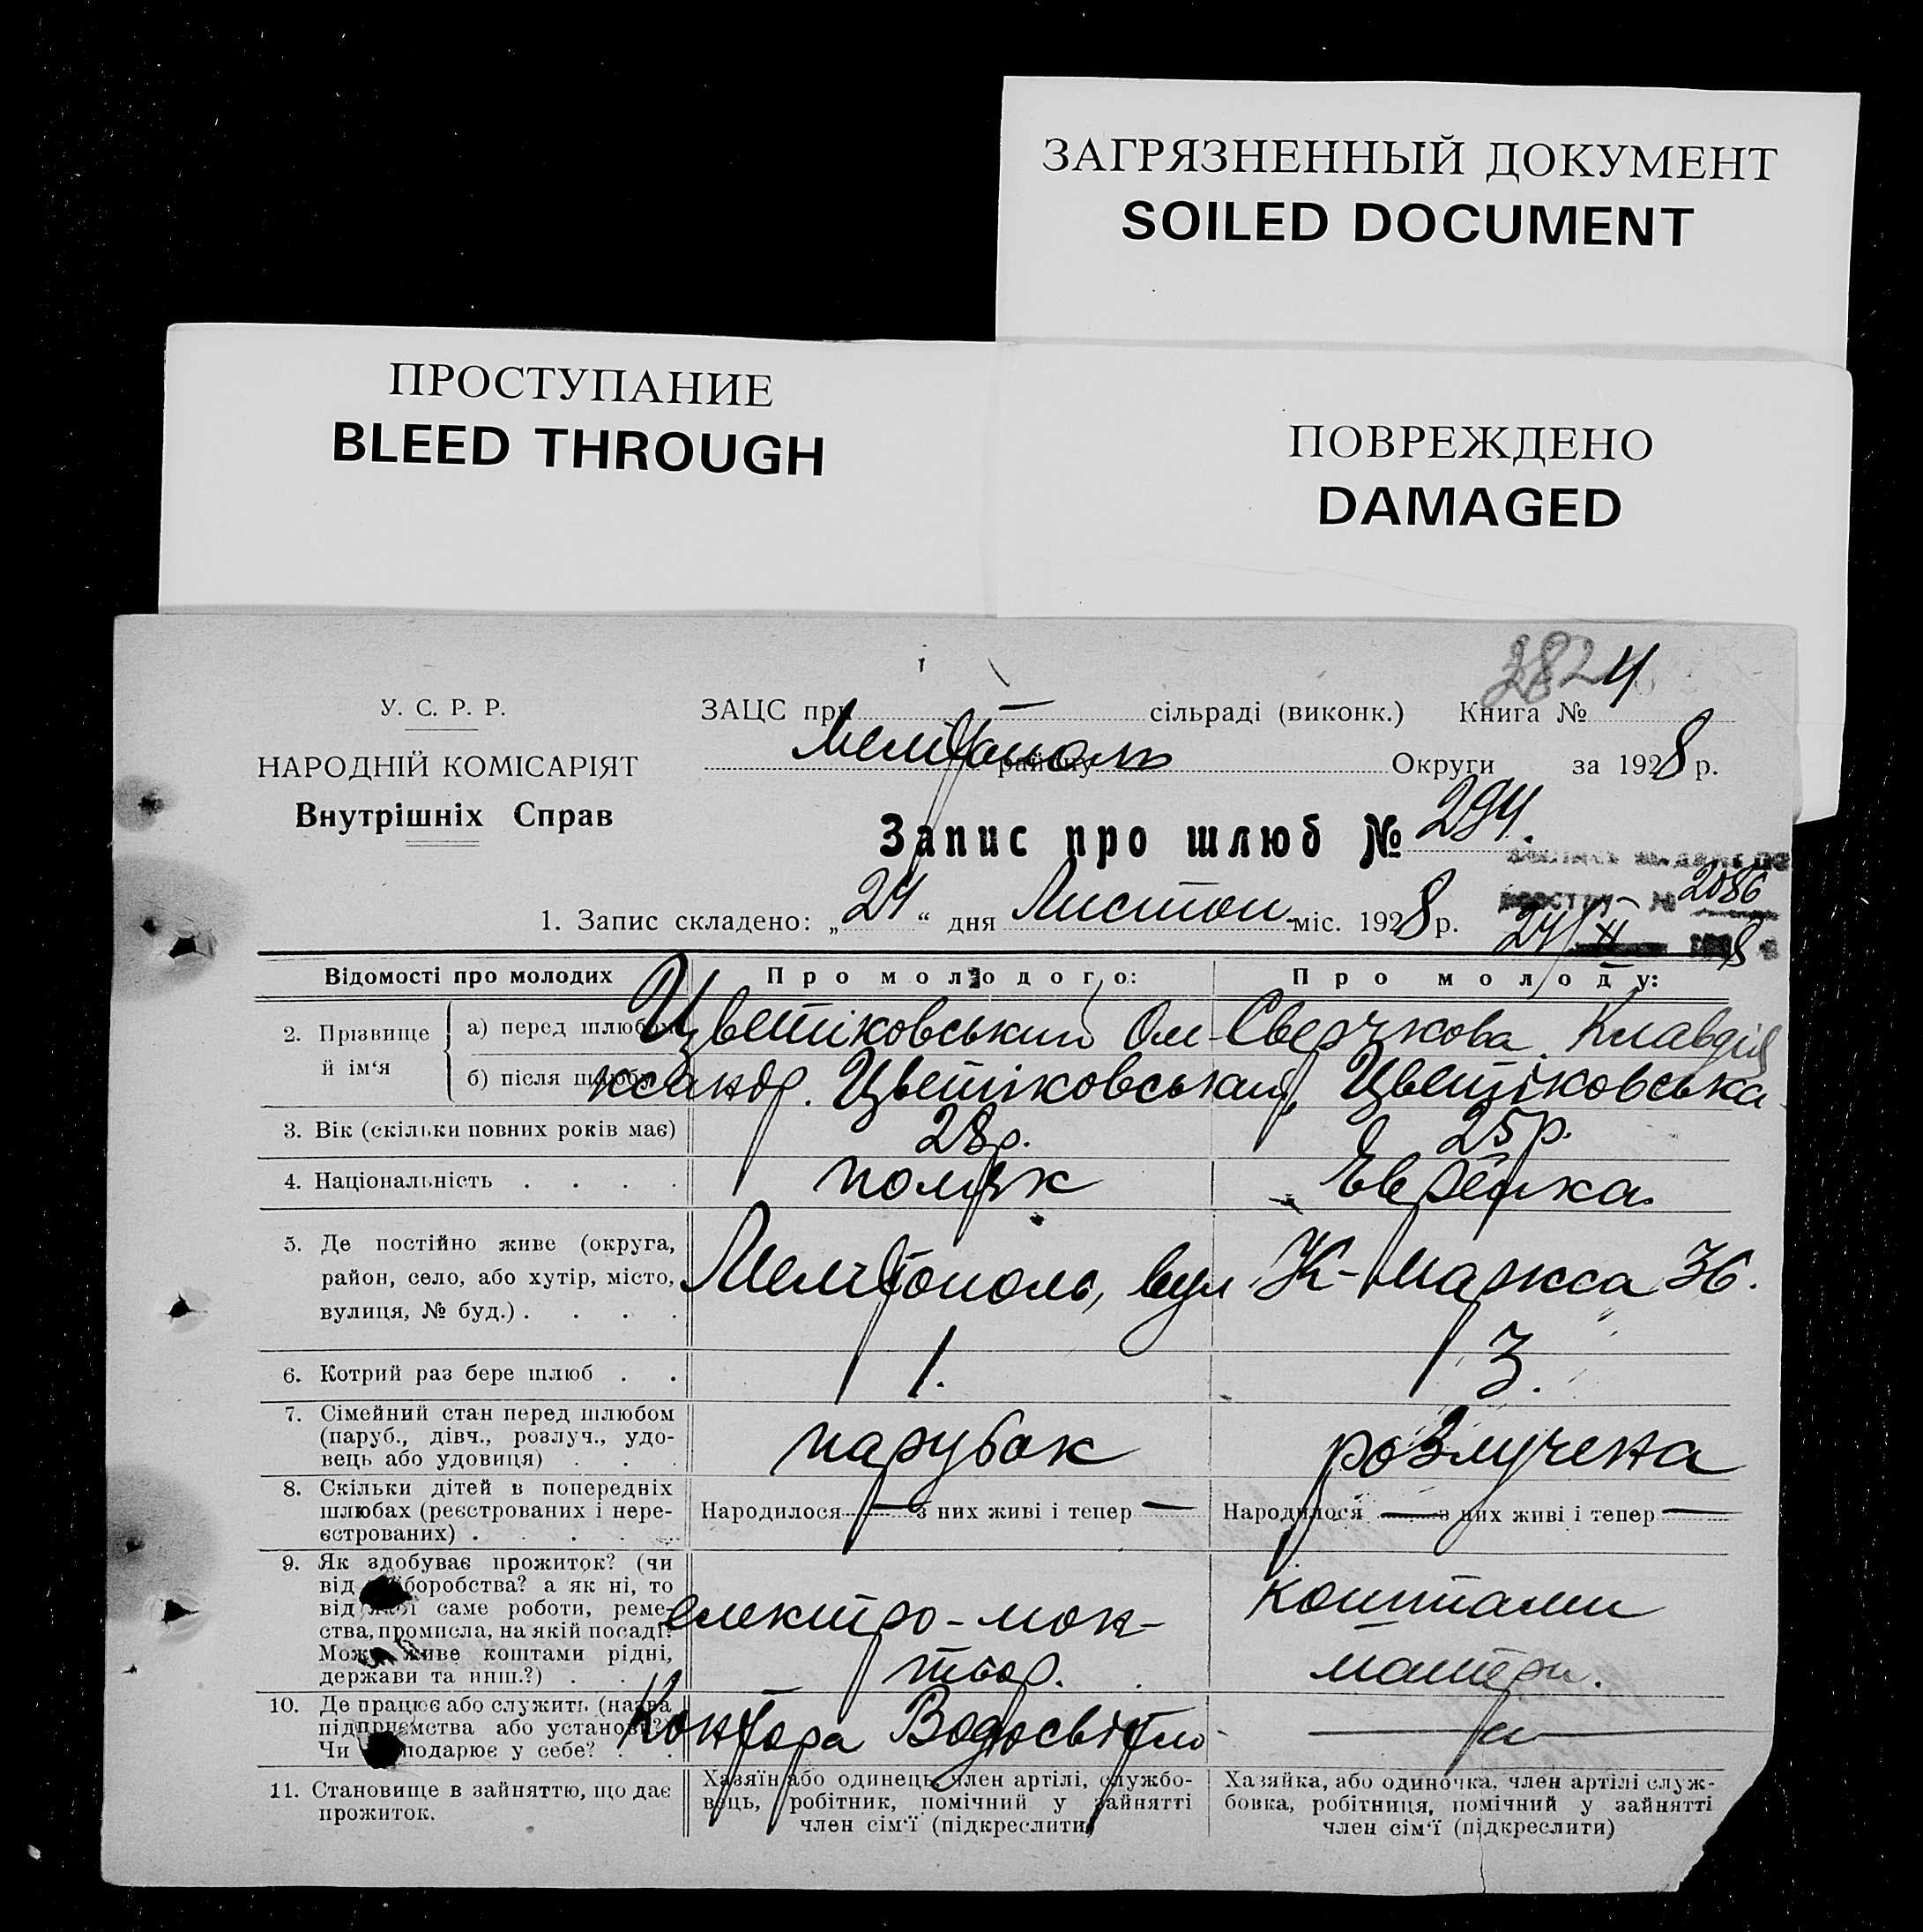 ЗАГРЯЗНЕННЫЙ ДОКУМЕНТ
SOILED DOCUMENT
ПРОСТУПАНИЕ
BLEED THROUGH
ПОВРЕЖДЕНО
DAMAGED
2824
У. С. Р. Р.
НАРОДНІЙ КОМІСАРІЯТ
Внутрішніх Справ
ЗАЦС при — сільраді (виконк.) Книга №
Мелітополь району Округи за 1928 р.
Запис про шлюб № 294.
№ 2086
24/XI 8
1. Запис складено: „24“ дня Листоп. міс. 1928 р.
Відомості про молодих Про молодого: Про молоду:
2. Прізвище й ім‘я
а) перед шлюбом Цветіковський Оле- Сверчкова Клавдія
б) після шлюбу ксандр. Цветіковський Цветіковська
3. Вік (скільки повних років має) 28 р. 25 р.
4. Національність . . . . поляк Еврейка.
5. Де постійно живе (округа,
район, село, або хутір, місто,
вулиця, № буд.) . . . .
Мелітополь, вул. К-Маркса 36.
6. Котрий раз бере шлюб . . 1. 3.
7. Сімейний стан перед шлюбом
(паруб., дівч., розлуч., удо-
вець або удовиця) . . .
парубок розлучена
8. Скільки дітей в попередніх
шлюбах (реєстрованих і нере-
єстрованих) .
Народилося — з них живі і тепер — Народилося — з них живі і тепер —
9. Як здобуває прожиток? (чи
від боробства? а як ні, то
від якої саме роботи, реме-
ства, промисла, на якій посаді?
Може живе коштами рідні,
держави та инш.?) . .
електро-мон-
тьор.
коштами
матери.
10. Де працює або служить (назва
підприємства або установи?)
Чи подарює у себе? . .
Контора Водосвітло —
11. Становище в зайняттю, що дає
прожиток.
Хазяїн або одинець, член артілі, службо-
вець, робітник, помічний у зайнятті
член сім‘ї (підкреслити)
Хазяйка, або одиночка, член артілі служ-
бовка, робітниця, помічний у зайнятті
член сім‘ї (підкреслити)